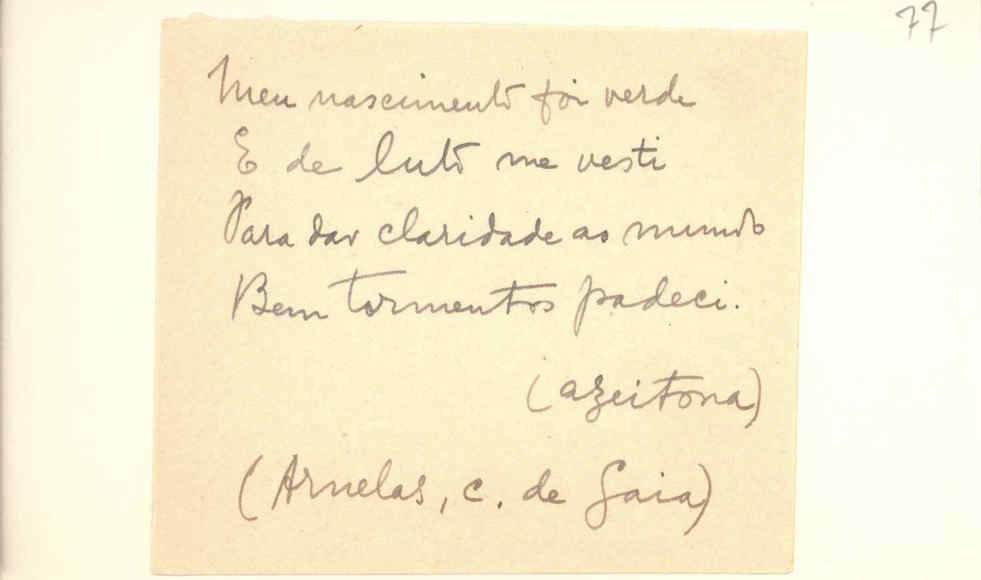 77
Meu nascimento foi verde
E de luto me vesti
Para dar claridade ao mundo
Bem tormentos padeci.
(azeitona)
(Arnelas, c. de Gaia)